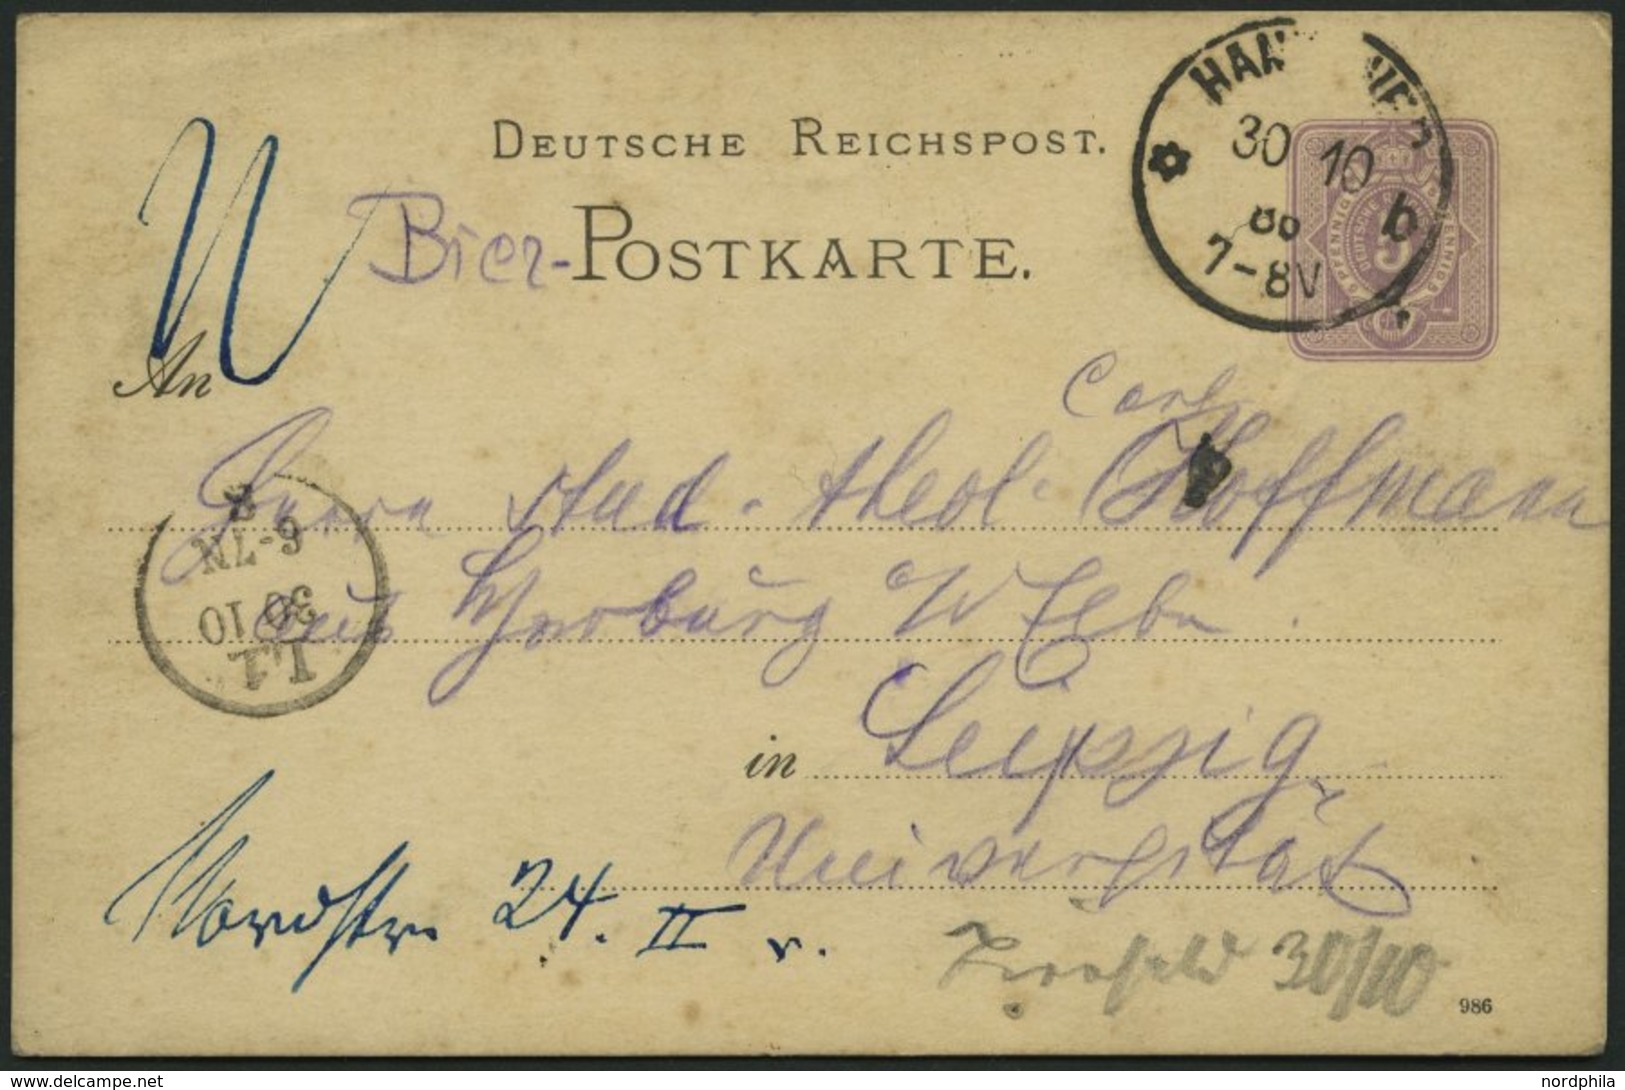 HANNOVER
30 10
86 b
7-8V
DEUTSCHE REICHSPOST.
Bier-POSTKARTE.
An
Carl
Herrn stud. theol. Hoffmann
aus
in Leipzig
Universität
6-7N
30 10
L1
Nordstr. 24. II r.
30/10
986
www.delcampe.net
nordphila